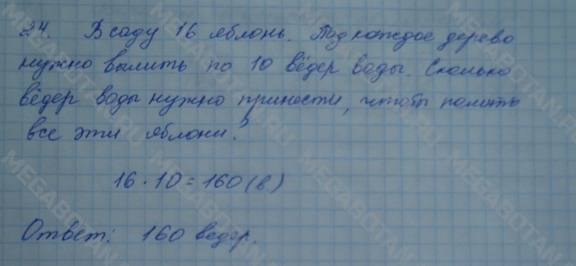 24. В саду 16 яблонь. Под каждое дерево
нужно вылить по 10 вёдер воды. Сколько
вёдер воды нужно принести, чтобы полить
все эти яблони?
16 · 10 = 160 (в)
Ответ: 160 ведер.